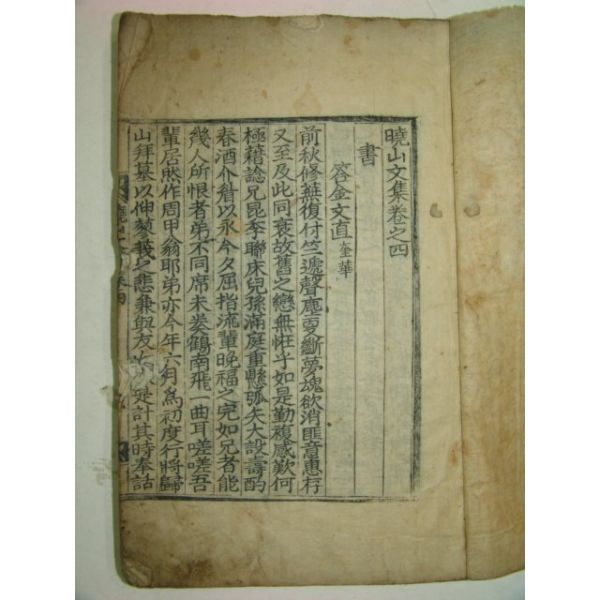 曉山文集卷之四
書
答金文直 奎華
前秋修蕪復付竺遞聲塵耍斷夢魂欲消匪意惠存
又至及此同衰故舊之戀無恠乎如是勤複感歎何
極藉諗兄昆季聯床兒孫滿庭重懸弧矢大設壽酌
春酒介眉以永今夕屈指流輩晚福之完如兄者能
幾人所恨者弟不同席未奏鶴南飛一曲耳嗟嗟吾
輩居然作周甲翁耶弟亦今年六月爲初度行將歸
山拜墓以伸蓼莪之悲兼與友是計其時奉話